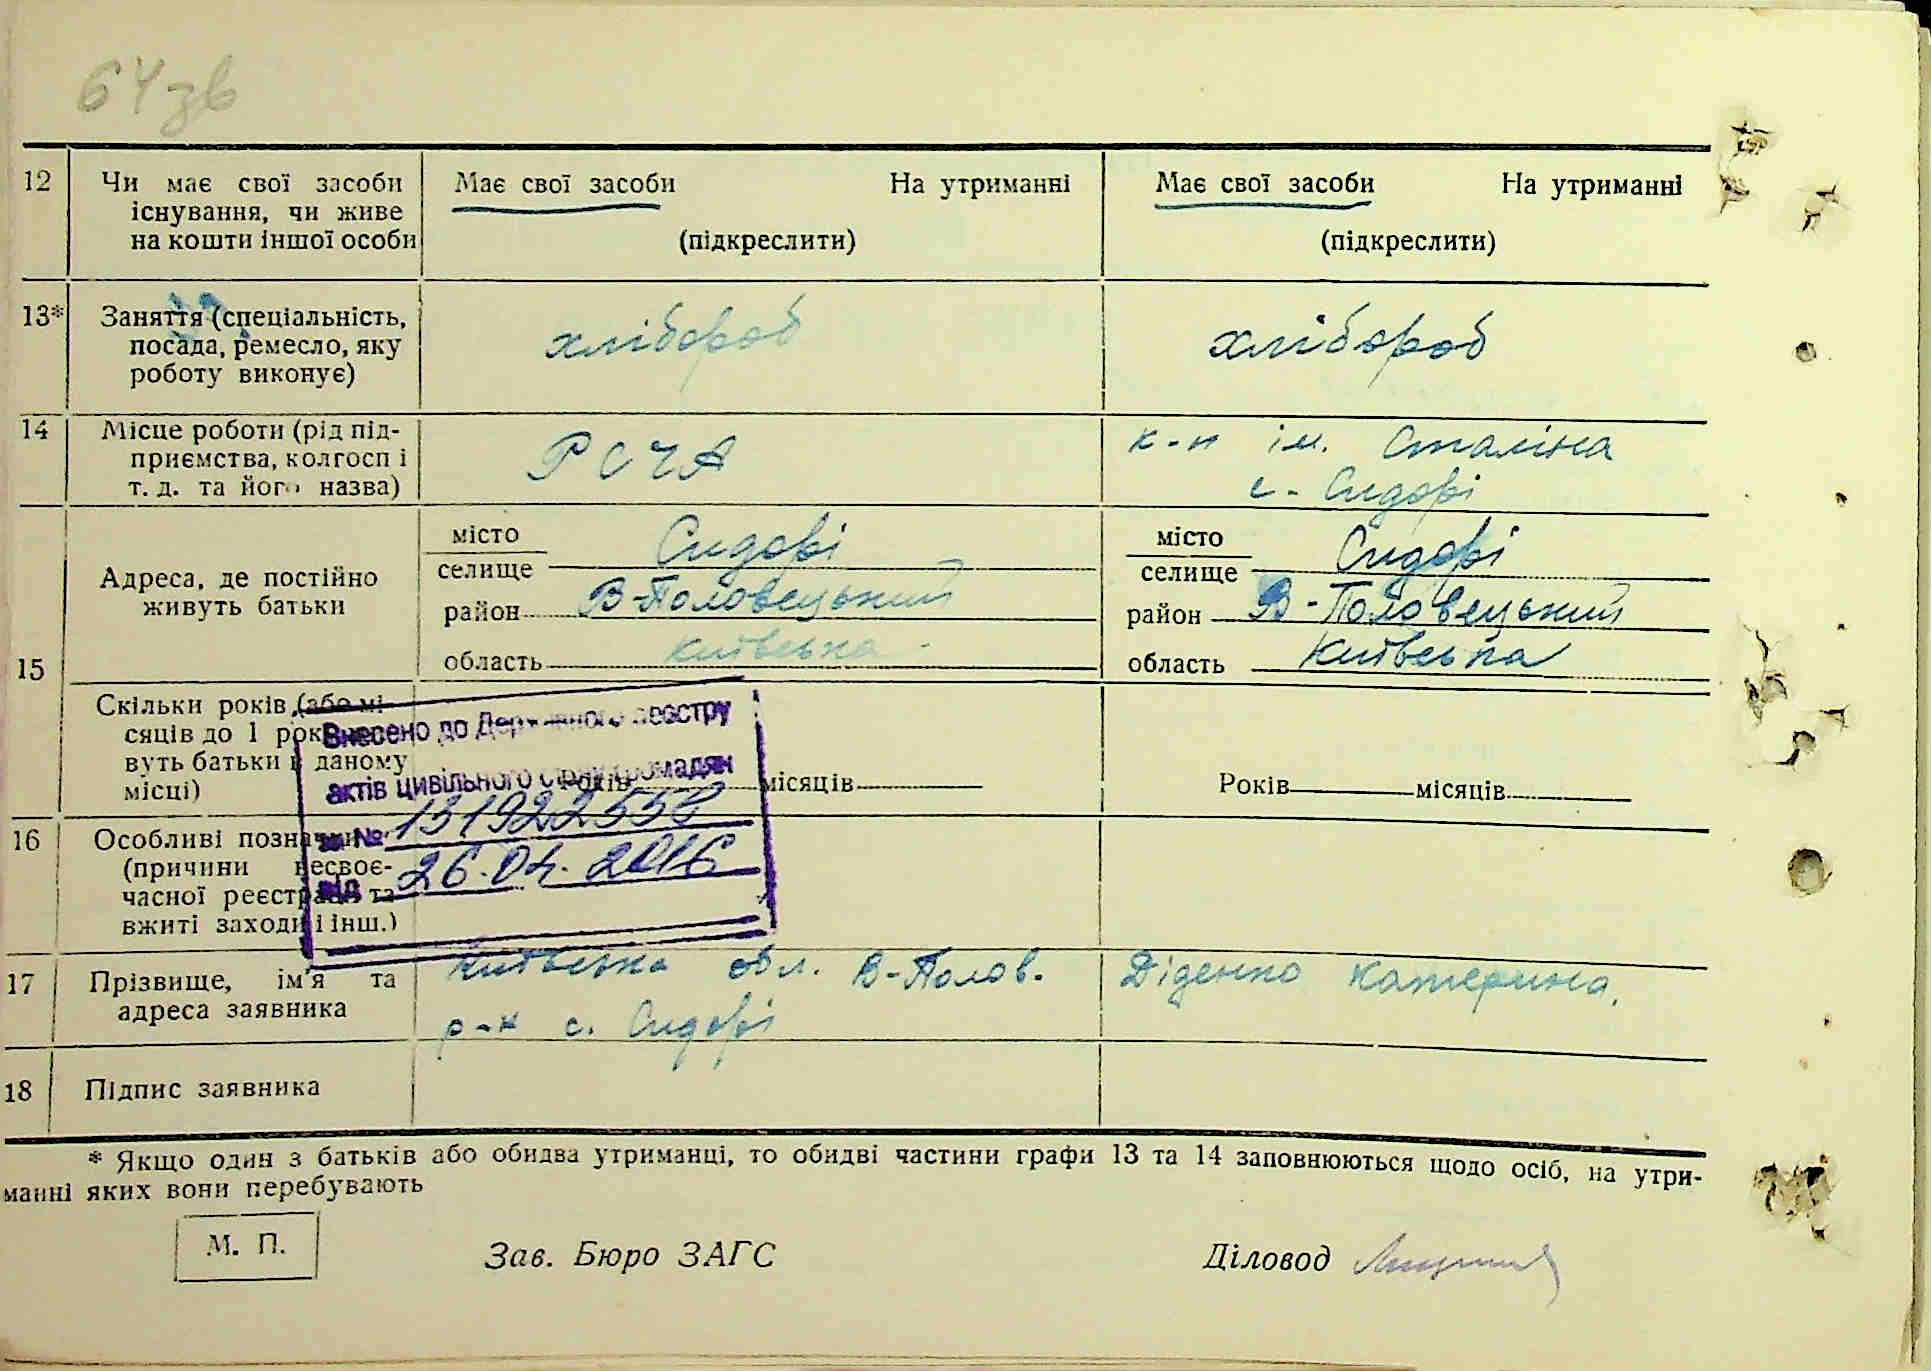 64зв
12 Чи має свої засоби Має свої засоби На утриманні Має свої засоби На утриманні
існування, чи живе
на кошти іншої особи (підкреслити) (підкреслити)
13* Заняття (спеціальність,
посада, ремесло, яку хлібороб хлібороб
роботу виконує)
14 Місце роботи (рід під- к-п ім. Сталіна
приємства, колгосп і РСЧА
т. д. та його назва) с. Сидорі
місто Сидорі місто Сидорі
Адреса, де постійно селище селище
живуть батьки район В-Половецький район В-Половецький
15 область Київська область Київська
Скільки років (або мі-
сяців до 1 рок
вуть батьки в даному
місці) Років місяців Років місяців
Внесено до Державного реєстру
актів цивільного стану громадян
за № 131922558
від 26.04.2016
16 Особливі позначки
(причини несвоє-
часної реєстрації та
вжиті заходи і інш.)
17 Прізвище, ім'я та Київська обл. В-Полов. Діденко Катерина,
адреса заявника р-н с. Сидорі
18 Підпис заявника
* Якщо один з батьків або обидва утриманці, то обидві частини графи 13 та 14 заповнюються щодо осіб, на утри-
манні яких вони перебувають
М. П. Зав. Бюро ЗАГС Діловод